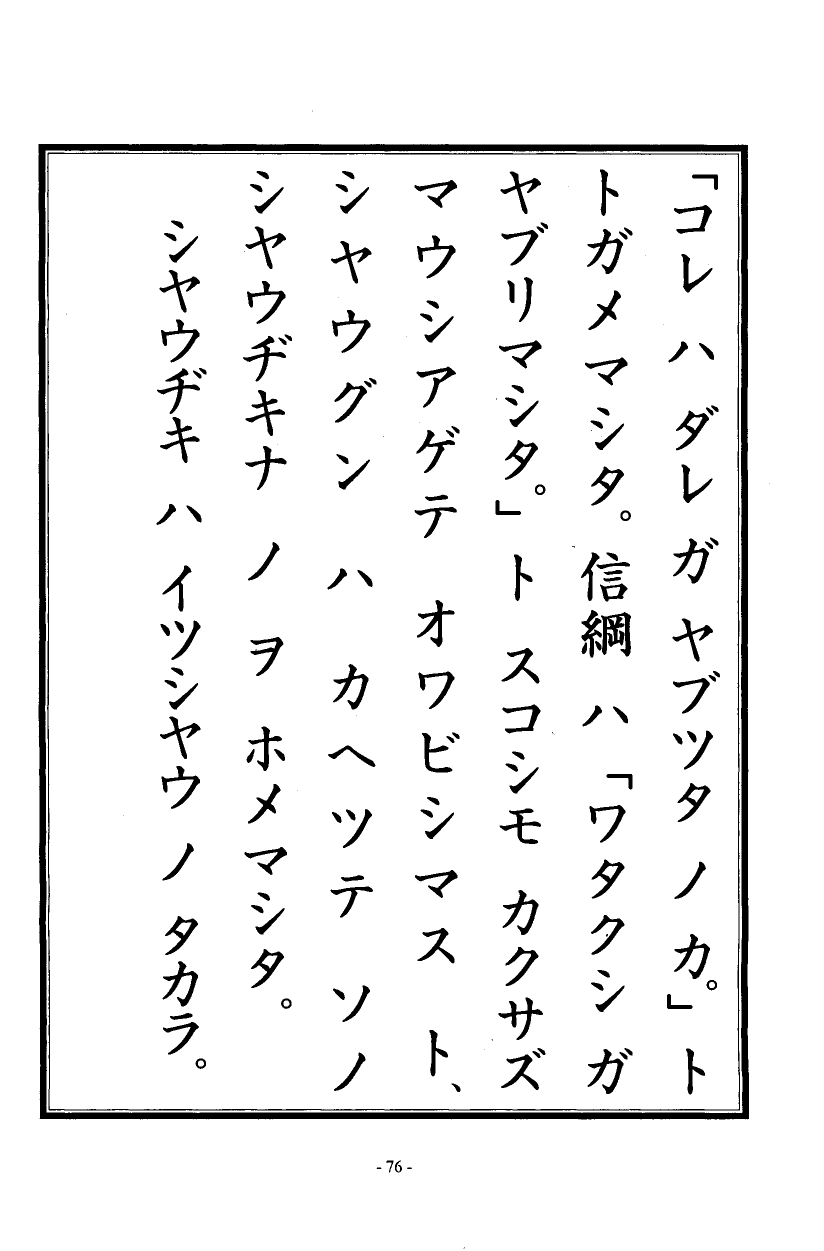 「コレ ハ ダレ ガ ヤブツタ ノ カ。」ト
トガメマシタ。信綱 ハ 「ワタクシ ガ
ヤブリマシタ。」ト スコシモ カクサズ
マウシアゲテ オワビシマス ト、
シヤウグン ハ カヘツテ ソノ
シヤウヂキナ ノ ヲ ホメマシタ。
シヤウヂキ ハ イツシヤウ ノ タカラ。
- 76 -